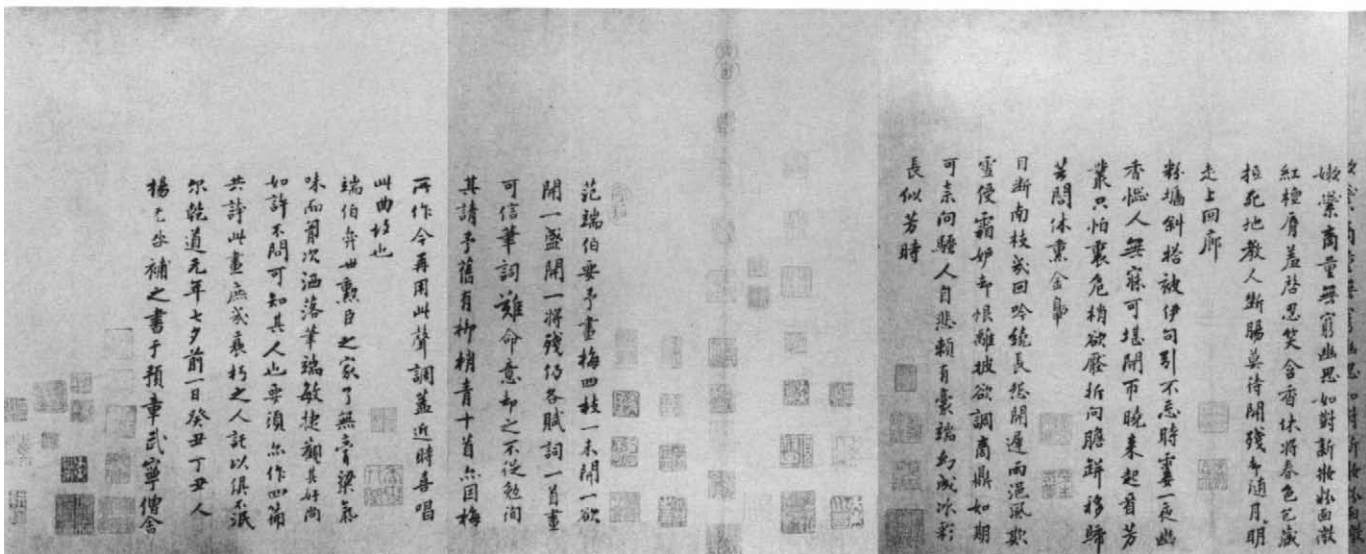 嫩蘂商量無窮幽思如對新妝粉面微
紅檀唇羞啓忍笑含香休將春色包藏
抵死地教人斷腸莫待開殘却隨月明
走上回廊
粉墻斜搭被伊勾引不忘時霎一夜幽
香惱人無寐可堪開匝曉來起看芳
叢只怕裏危梢欲壓折向膽缾移歸
芸閣休熏金鴨
目斷南枝幾回吟繞長怨開遲雨浥風欺
雪侵霜妒却恨離披欲調商鼎如期
可柰向騷人自悲賴有毫端幻成冰彩
長似芳時
范端伯要予畫梅四枝一未開一欲
開一盛開一將殘仍各賦詞一首畫
可信筆詞難命意却之不從勉徇
其請予舊有柳梢青十首亦因梅
所作今再用此聲調蓋近時喜唱
此曲故也
端伯奕世勳臣之家了無膏粱氣
味而胷次洒落筆端敏捷觀其好尚
如許不問可知其人也要須亦作四篇
共誇此畫庶幾衰朽之人託以俱不泯
尔乾道元年七夕前一日癸丑丁丑人
楊无咎補之書于預章武寧僧舍